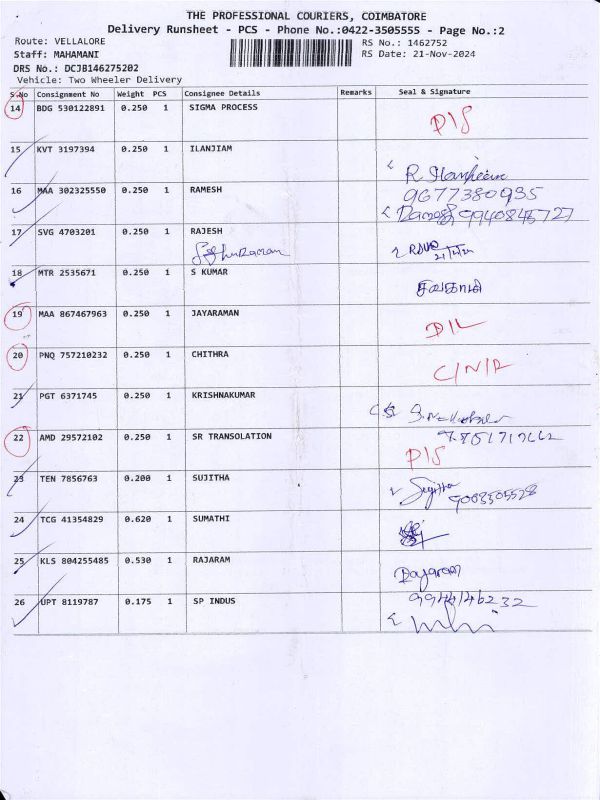 THE PROFESSIONAL COURIERS, COIMBATORE
Delivery Runsheet - PCS - Phone No.:0422-3505555 - Page No.:2
Route: VELLALORE
RS No.: 1462752
Staff: MAHAMANI
RS Date: 21-Nov-2024
DRS No.: DCJB146275202
Vehicle: Two Wheeler Delivery
S.No Consignment No Weight PCS Consignee Details Remarks Seal & Signature
14 BDG 530122891 0.250 1 SIGMA PROCESS D/S
15 KVT 3197394 0.250 1 ILANJIAM
R
9677380935
16 MAA 302325550 0.250 1 RAMESH
9940845727
17 SVG 4703201 0.250 1 RAJESH
18 MTR 2535671 0.250 1 S KUMAR
19 MAA 867467963 0.250 1 JAYARAMAN D/L
20 PNQ 757210232 0.250 1 CHITHRA C/N/R
21 PGT 6371745 0.250 1 KRISHNAKUMAR
22 AMD 29572102 0.250 1 SR TRANSOLATION D/S
23 TEN 7856763 0.200 1 SUJITHA Sujitha
9003505528
24 TCG 41354829 0.620 1 SUMATHI
25 KLS 804255485 0.530 1 RAJARAM Rajaram
26 UPT 8119787 0.175 1 SP INDUS